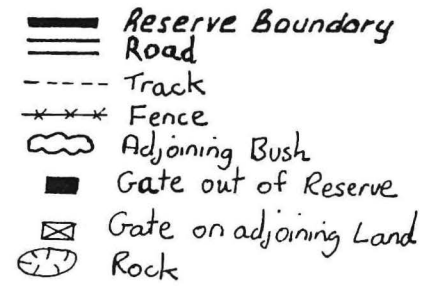 Reserve Boundary
Road
Track
Fence
Adjoining Bush
Gate out of Reserve
Gate on adjoining Land
Rock